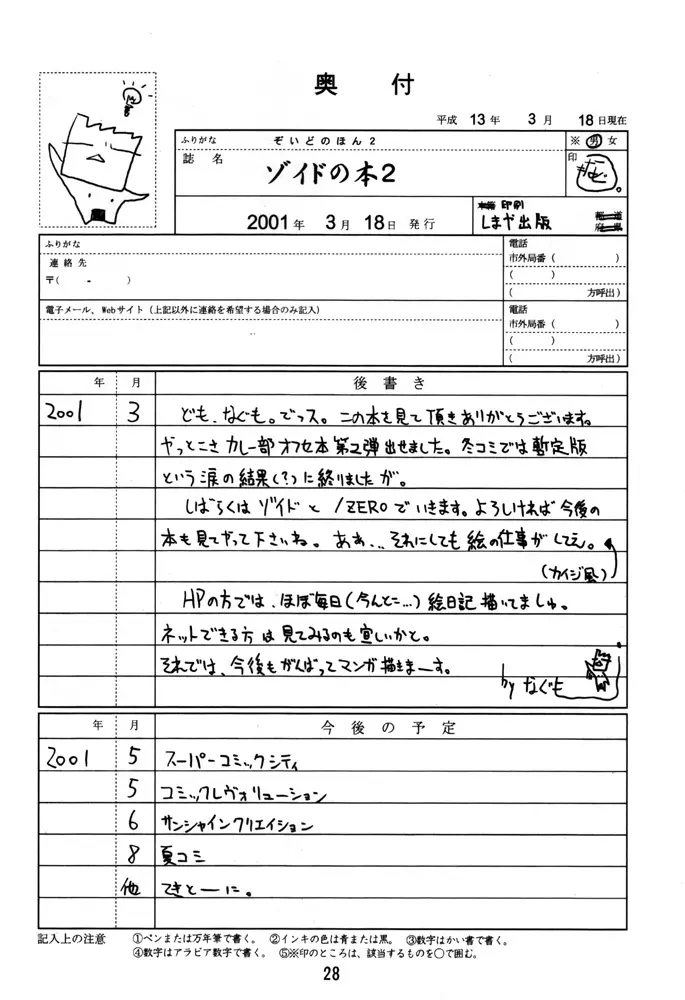 奥付
平成 13年 3月 18日現在
ふりがな ぞいどのほん2
誌名 ゾイドの本2
※ 男 女
印
2001年 3月 18日 発行
印刷
しまや出版
都道
府県
ふりがな
連絡先
〒( - )
電話
市外局番 ( )
( )
( 方呼出)
電子メール、Webサイト (上記以外に連絡を希望する場合のみ記入)
電話
市外局番 ( )
( )
( 方呼出)
年 月 後書き
2001 3 ども、なぐも。でっス。この本を見て頂きありがとうございます。
やっとこさカレー部オフセ本第2弾出せました。冬コミでは暫定版
という涙の結果(?)に終りましたが。
しばらくは ゾイド と /ZERO でいきます。よろしければ今後の
本も見てやって下さいね。ああ…それにしても絵の仕事がしてえ。
(カイジ風)
HPの方では、ほぼ毎日(今んとこ…)絵日記描いてましゅ。
ネットできる方は見てみるのも宜いかと。
それでは、今後もがんばってマンガ描きまーす。
by なぐも
年 月 今後の予定
2001 5 スーパーコミックシティ
5 コミックレヴォリューション
6 サンシャインクリエイション
8 夏コミ
他 てきとーに。
記入上の注意 ①ペンまたは万年筆で書く。 ②インキの色は青または黒。 ③数字はかい書で書く。
④数字はアラビア数字で書く。 ⑤※印のところは、該当するものを○で囲む。
28